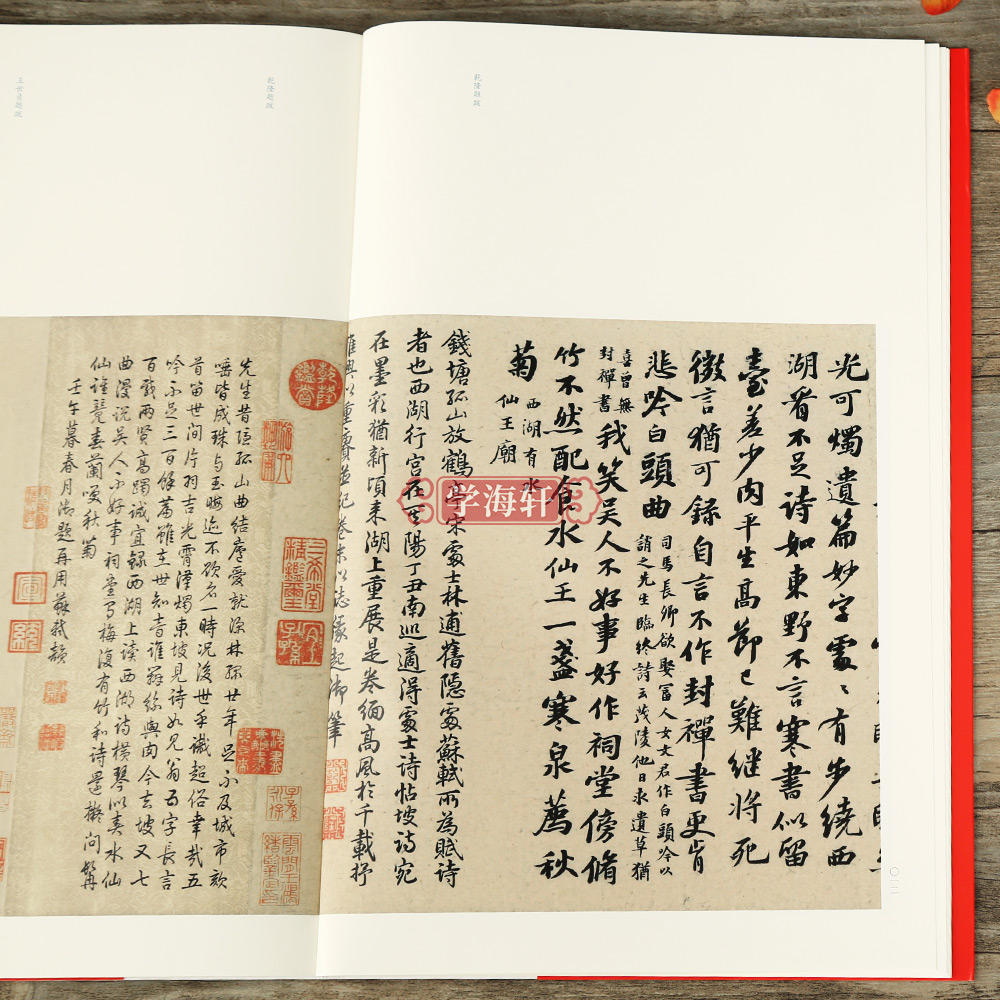 光可燭遺篇妙字處〻有步繞西
湖看不足詩如東野不言寒書似留
臺差少肉平生高節已難繼將死
微言猶可錄自言不作封禪書更肯
悲吟白頭曲
司馬長卿欲娶富人女文君作白頭吟以
誚之先生臨終詩云茂陵他日求遺草猶
喜曾無
封禪書
我笑吳人不好事好作祠堂傍脩
竹不然配食水仙王一盞寒泉薦秋
菊
西湖有水
仙王廟
錢塘孤山放鶴亭宋處士林逋舊隱處蘇軾所為賦詩
者也西湖行宮在其陽丁丑南巡適得處士詩帖坡詩宛
在墨彩猶新頃來湖上重展是卷緬高風於千載抒
雅興以重賡並記卷末以志緣起御筆
先生昔隱孤山曲結廬愛就深林綠廿年足不及城市欬
唾皆成珠與玉晦迹不欲名一時況後世乎誠超俗幸哉五
首留世間片羽吉光霄漢燭東坡見詩如見翁五字長言
吟不足三百餘篇雖在世知音誰辭絲與肉今去坡又七
百載兩賢高躅誠宜錄西湖上讀西湖詩橫琴以奏水仙
曲漫說吳人不好事祠堂有梅復有竹和詩還擬問髯
仙誰薦春蘭薦秋菊
壬午暮春月御題再用蘇軾韻
乾隆題跋
乾隆題跋
王世貞題跋
乾隆鑑賞
三希堂精鑑璽
宜子孫
学海轩
〇二二